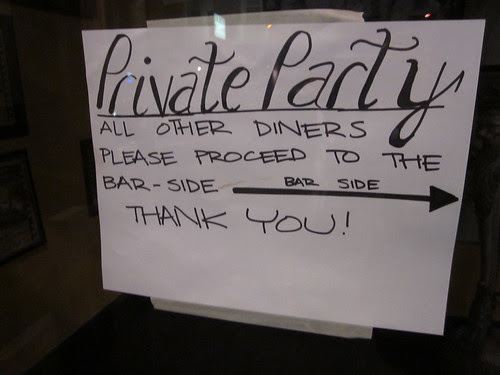 Private Party
ALL OTHER DINERS
PLEASE PROCEED TO THE
BAR-SIDE BAR SIDE
THANK YOU!